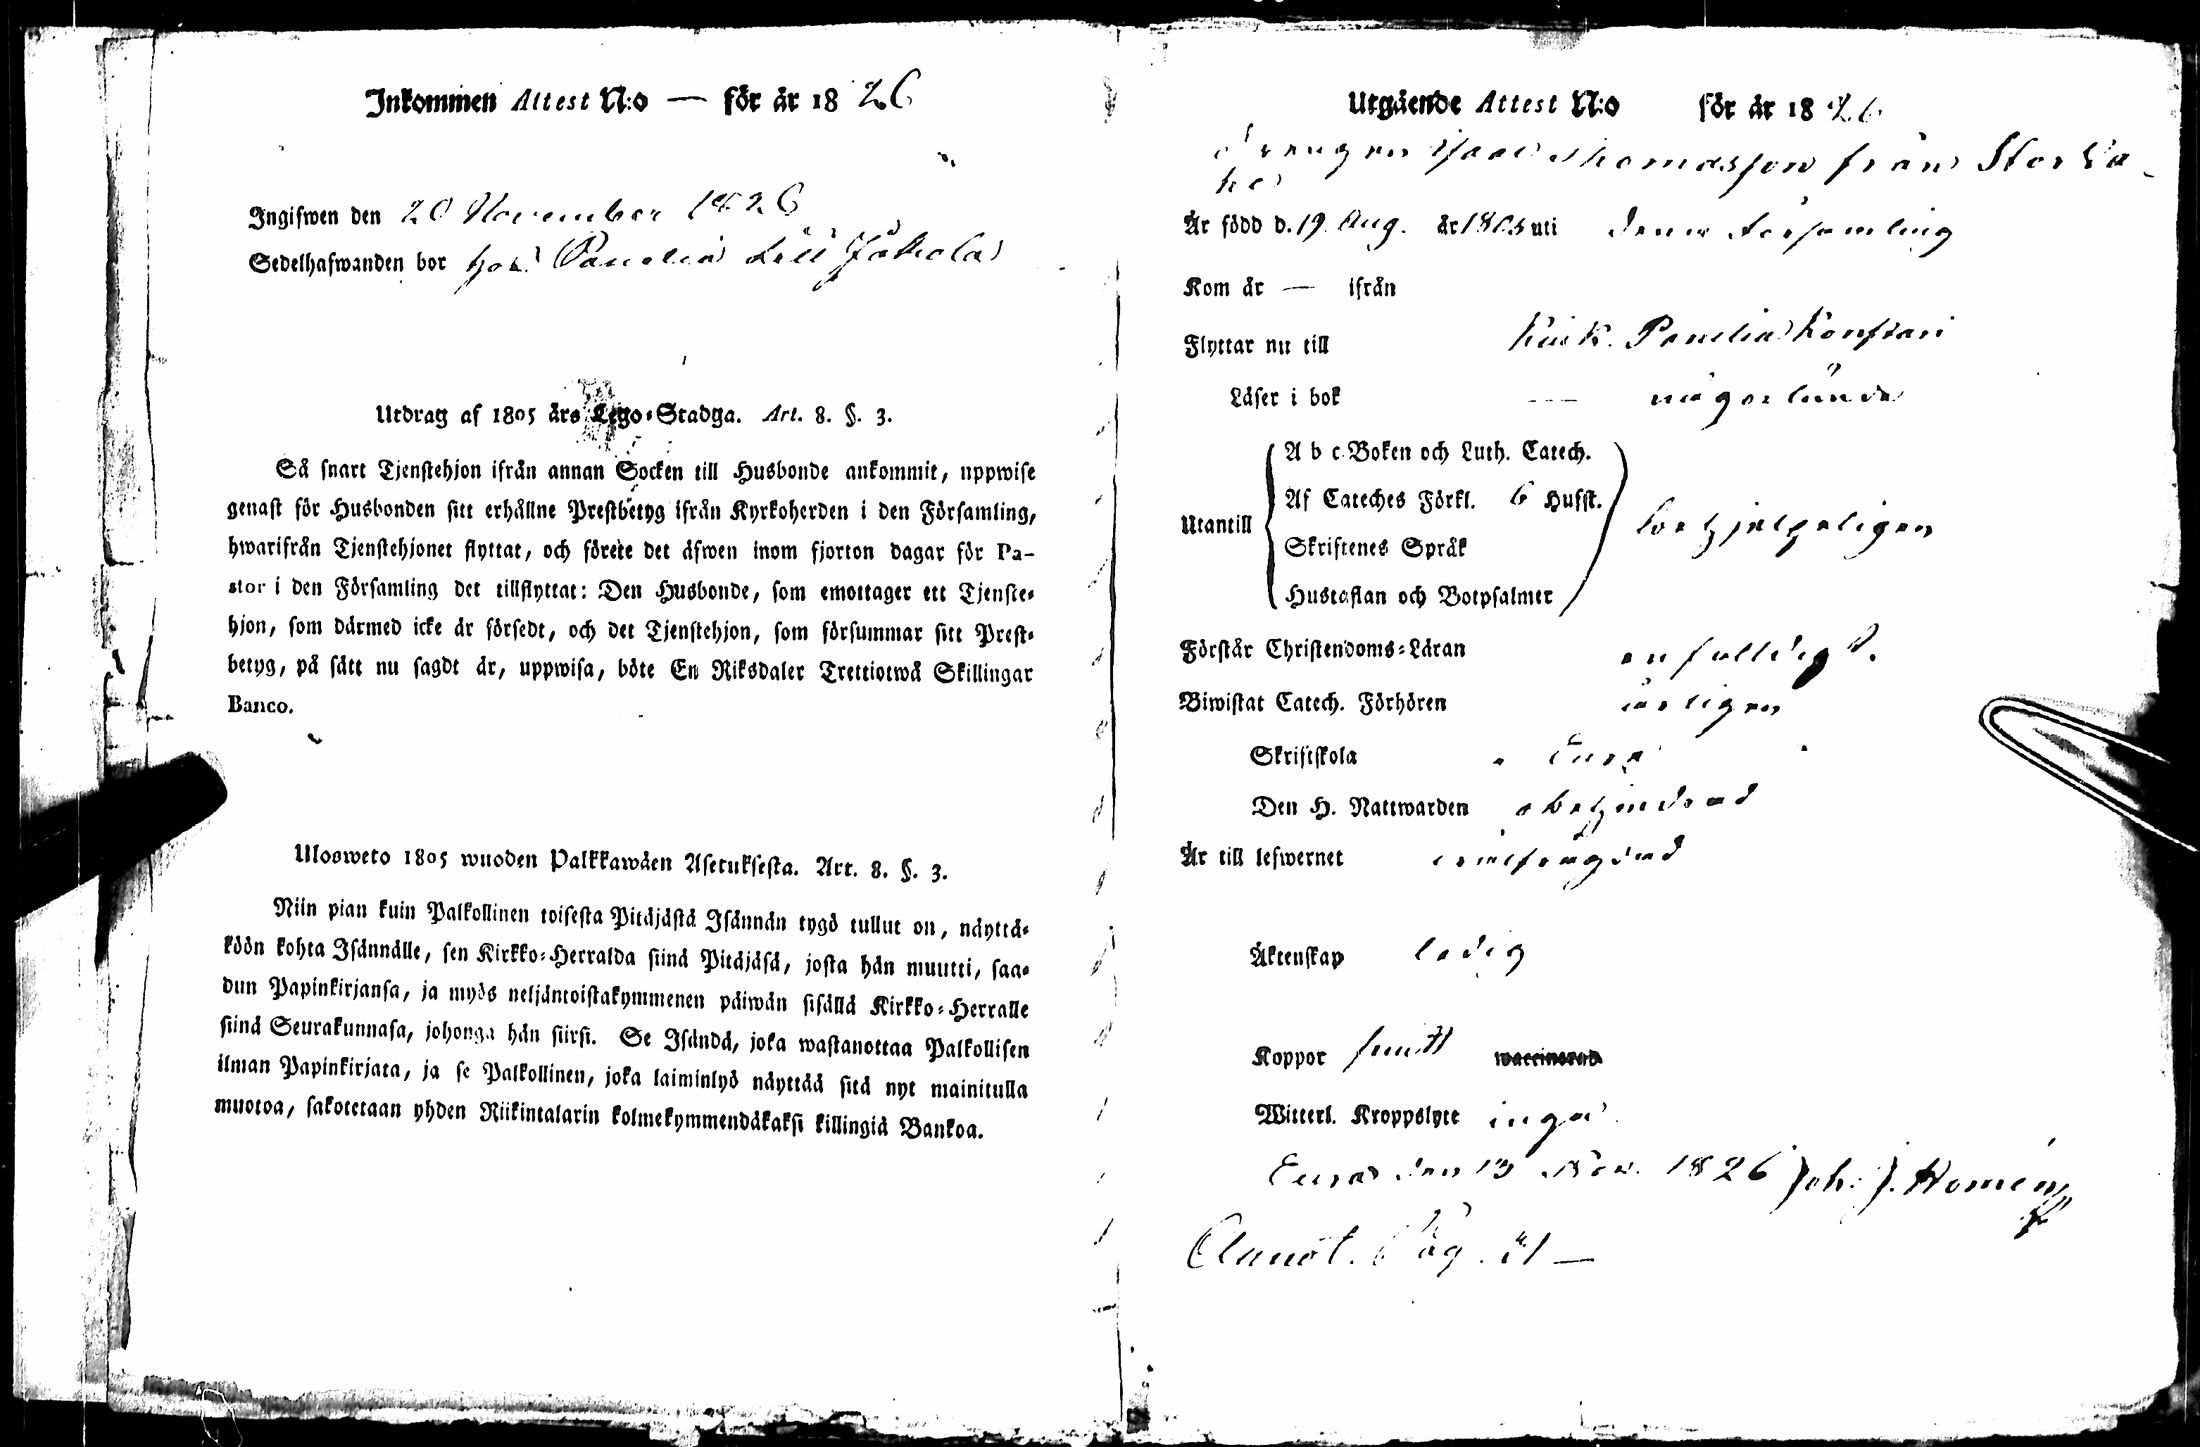 Inkommen Attest N:o — för år 1826
Ingifwen den 20 November 1826
Sedelhafwanden bor hos Panelia Lill Jåkola
Utdrag af 1805 års Lego-Stadga. Art. 8. §. 3.
Så snart Tjenstehjon ifrån annan Socken till Husbonde ankommit, uppwise
genast för Husbonden sitt erhållne Prestbetyg ifrån Kyrkoherden i den Församling,
hwarifrån Tjenstehjonet flyttat, och förete det äfwen inom fjorton dagar för Pa-
stor i den Församling det tillflyttat: Den Husbonde, som emottager ett Tjenste-
hjon, som därmed icke är försedt, och det Tjenstehjon, som försummar sitt Prest-
betyg, på sätt nu sagdt är, uppwisa, böte En Riksdaler Trettiotwå Skillingar
Banco.
Ulosweto 1805 wuoden Palkkawäen Asetuksesta. Art. 8. §. 3.
Niin pian kuin Palkollinen toisesta Pitäjästä Isännän tygö tullut on, näyttä-
köön kohta Isännälle, sen Kirkko-Herralda siinä Pitäjäsä, josta hän muutti, saa-
dun Papinkirjansa, ja myös neljäntoistakymmenen päiwän sisällä Kirkko-Herralle
siinä Seurakunnasa, johonga hän siirsi. Se Isändä, joka wastanottaa Palkollisen
ilman Papinkirjata, ja se Palkollinen, joka laiminlyö näyttää sitä nyt mainitulla
muotoa, sakotetaan yhden Riikintalarin kolmekymmendäkaksi killingiä Bankoa.
Utgående Attest N:o för år 1826
drengen Isaac Thomasson från Stor
Är född d. 19 Aug. år 1805 uti denna församling
Kom år — ifrån
Flyttar nu till Kiuk. Panelia Konstari
Läser i bok någorlunda
A b c Boken och Luth. Catech.
Af Cateches Förkl. 6 Husst.
Utantill borthjelpeligen
Skriftenes Språk
Hustaflan och Botpsalmer
Förstår Christendoms-Läran enfaldigt.
Biwistat Catech. Förhören årligen
Skriftskola Eura
Den H. Nattwarden obehindrad
Är till lefwernet
Äktenskap ledig
Koppor haft waccinerad
Witterl. Kroppslyte inga
Eura den 13 Nov. 1826 Joh: J. Homén
Annot. Pag. 21 —